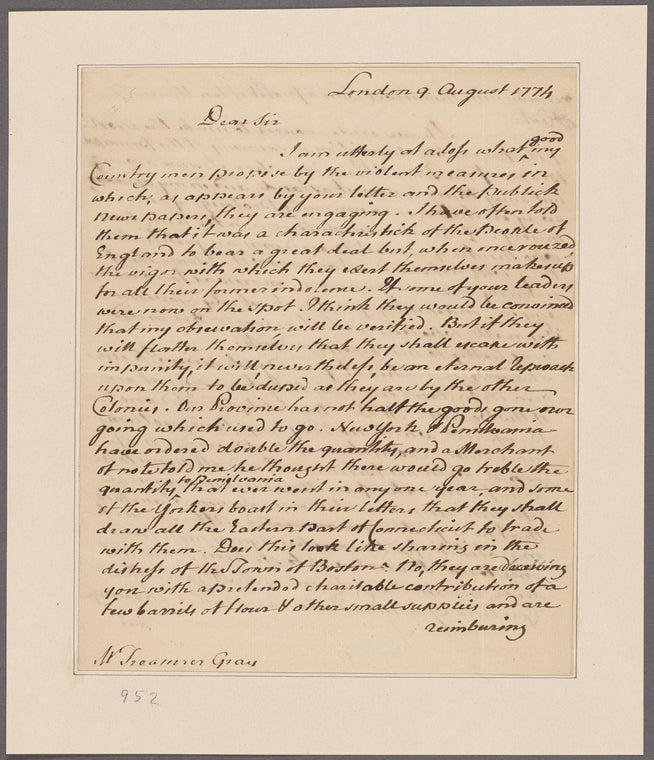 London 9 August 1774
Dear Sir
I am utterly at a loss what good my
Country men propose by the violent measures in
which, as appears by your letter and the Publick
News papers, they are engaging. I have often told
them that it was a characteristick of the People of
England to bear a great deal but, when once rouzed
the vigor with which they exert themselves makes up
for all their former indolence. If some of your Leaders
were now on the spot I think they would be convinced
that my observation will be verified. But if they
will flatter themselves that they shall escape with
impunity, it will nevertheless be an eternal Reproach
upon them to be duped as they are by the other
Colonies. Our Province has not half the goods gone over
going which used to go. New York & Pensilvania
have ordered double the quantity, and a Merchant
of note told me he thought there would go treble the
quantity to Pensylvania that ever went in any one year, and some
of the Yorkers boast in their letters that they shall
draw all the Eastern part of Connecticut to trade
with them. Does this look like sharing in the
distress of the Town of Boston? No, they are deceiving
you with a pretended charitable contribution of a
few barrils of flour & other small supplies and are
reimbursing
Mr Treasurer Gray
952